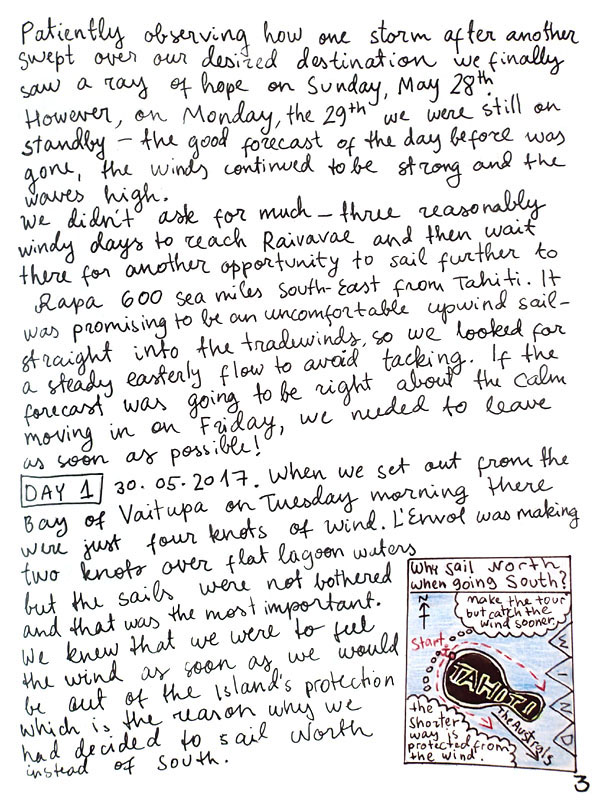 Patiently observing how one storm after another
swept over our desired destination we finally
saw a ray of hope on Sunday, May 28th.
However, on Monday, the 29th we were still on
standby – the good forecast of the day before was
gone, the winds continued to be strong and the
waves high.
We didn't ask for much – three reasonably
windy days to reach Raivavae and then wait
there for another opportunity to sail further to
Rapa 600 sea miles South-East from Tahiti. It
was promising to be an uncomfortable upwind sail –
straight into the tradewinds, so we looked for
a steady easterly flow to avoid tacking. If the
forecast was going to be right about the calm
moving in on Friday, we needed to leave
as soon as possible!
DAY 1 30.05.2017. When we set out from the
Bay of Vaitupa on Tuesday morning there
were just four knots of wind. L'Envol was making
two knots over flat lagoon waters
but the sails were not bothered
and that was the most important.
We knew that we were to feel
the wind as soon as we would
be out of the Island's protection
which is the reason why we
had decided to sail North
instead of South.
Why sail North,
when going South?
N
make the tour
but catch the
wind sooner.
Start
WIND
TAHITI
The Australs
the
shorter
way is
protected from
the wind.
3